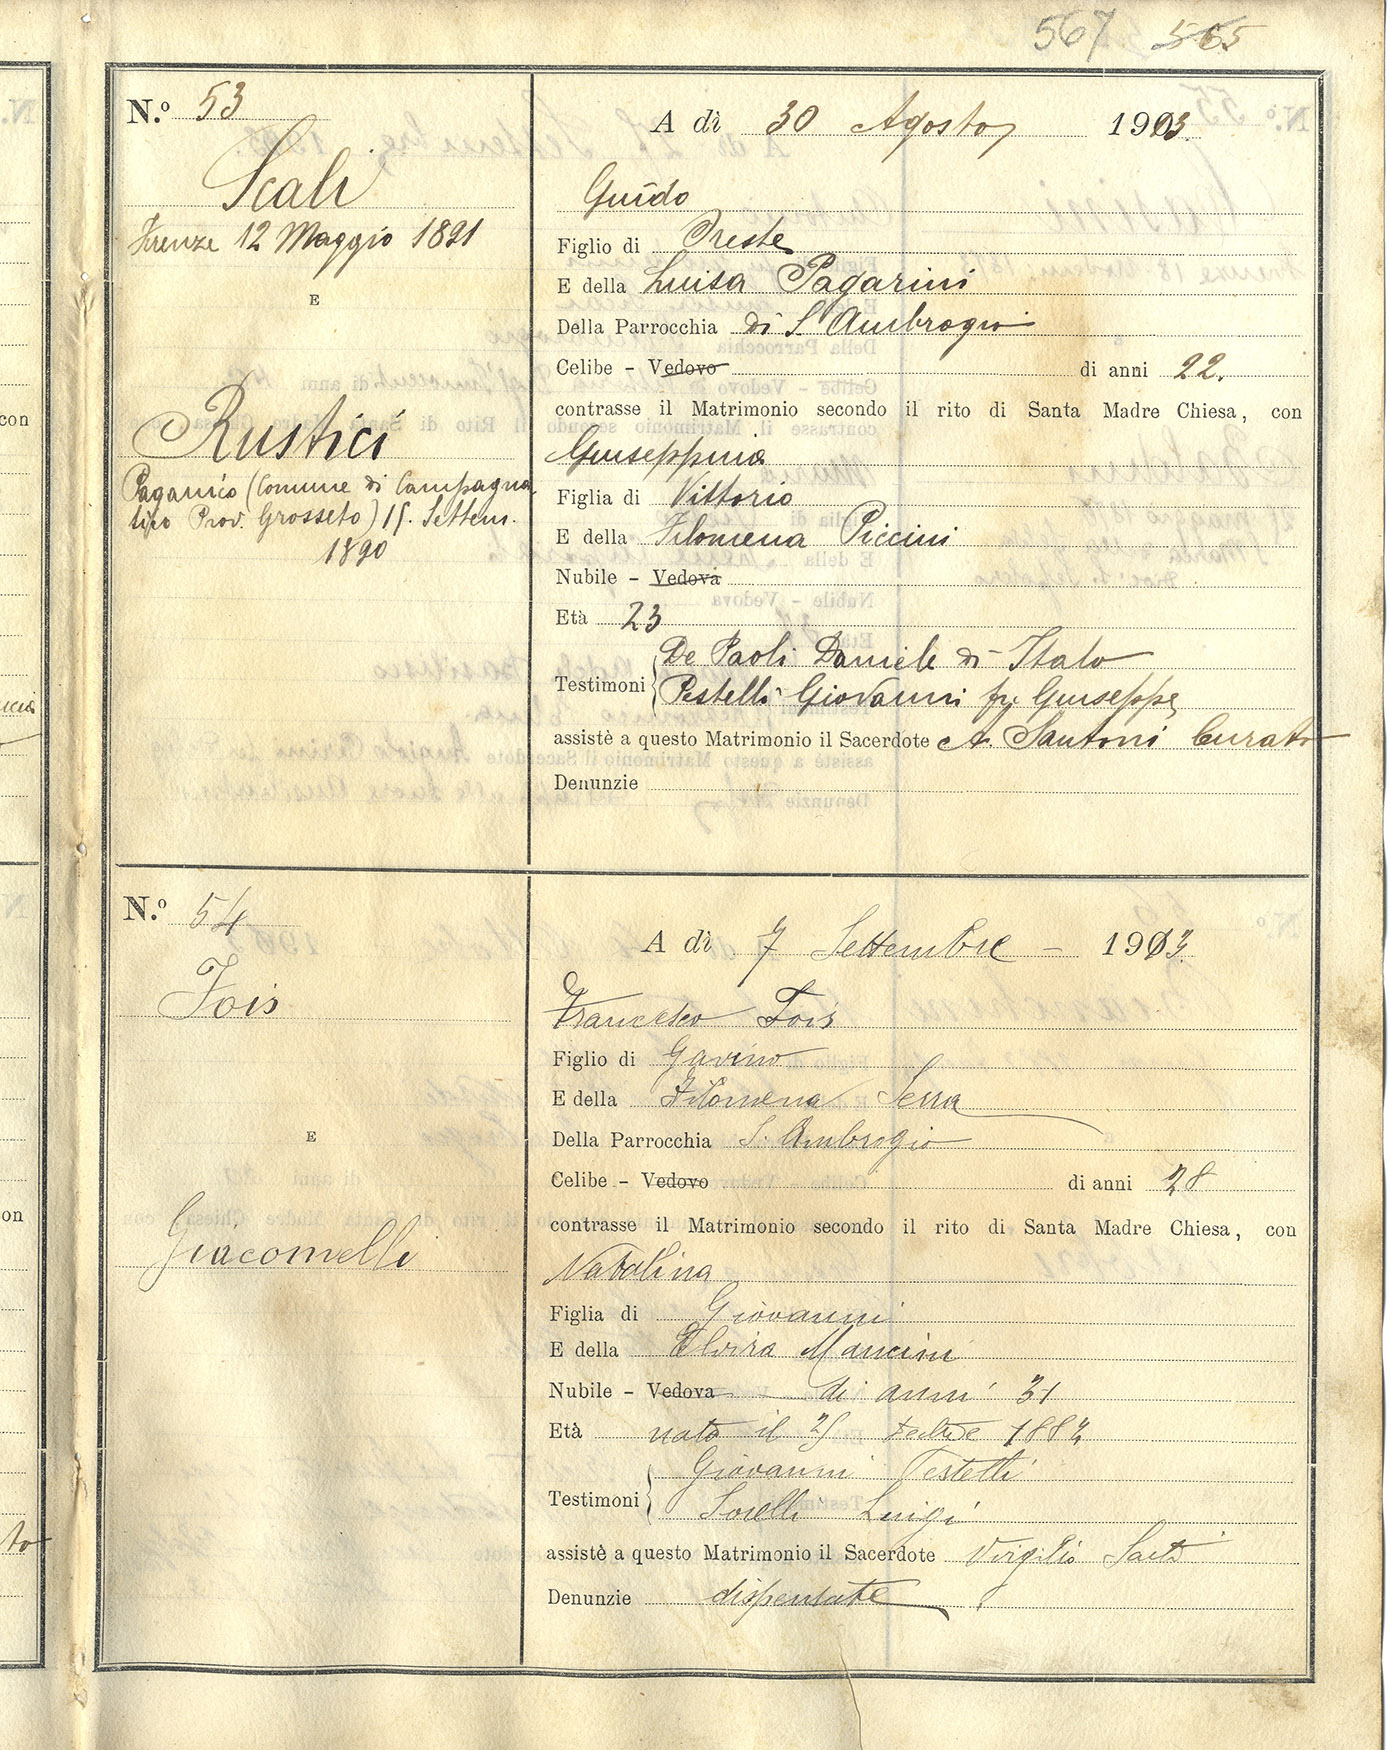 567 565
N.º 53
Scali
Firenze 12 Maggio 1891
E
Rustici
Paganico (Comune di Campagna
tico Prov. Grosseto) 15. Settem.
1890
A dì 30 Agosto 1913
Guido
Figlio di Oreste
E della Luisa Pagarini
Della Parrocchia di S. Ambrogio
Celibe - Vedovo di anni 22.
contrasse il Matrimonio secondo il rito di Santa Madre Chiesa, con
Giuseppina
Figlia di Vittorio
E della Filomena Piccini
Nubile - Vedova
Età 23
De Paoli Daniele di Italo
Testimoni Pestelli Giovanni fu Giuseppe
assistè a questo Matrimonio il Sacerdote A. Santoni Curato
Denunzie
N.º 54
Fois
E
Giacomelli
A dì 7 Settembre 1913
Francesco Fois
Figlio di Gavino
E della Filomena Serra
Della Parrocchia S. Ambrogio
Celibe - Vedovo di anni 28
contrasse il Matrimonio secondo il rito di Santa Madre Chiesa, con
Natalina
Figlia di Giovanni
E della Elvira Mancini
Nubile - Vedova di anni 31
Età nata il 25
Giovanni Pestelli
Testimoni Sorelli Luigi
assistè a questo Matrimonio il Sacerdote Virgilio
Denunzie dispensate